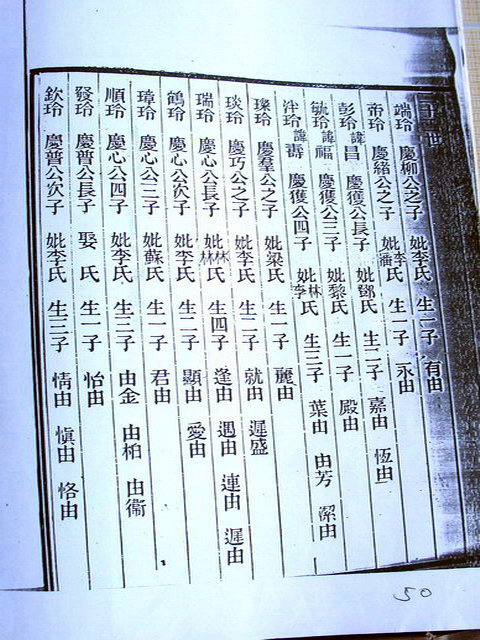 世
端玲 慶柳公之子 妣李氏 生一子 有由
帝玲 慶緒公之子 妣李氏 生一子 永由
彭玲 諱昌 慶獲公長子 妣鄧氏 生二子 嘉由 恆由
毓玲 諱福 慶獲公三子 妣黎氏 生一子 殿由
泮玲 諱壽 慶獲公四子 妣林李氏 生三子 葉由 由芳 潔由
璨玲 慶羣公之子 妣梁氏 生一子 麗由
琰玲 慶巧公之子 妣李氏 生二子 就由 遲盛
瑞玲 慶心公長子 妣林林氏 生四子 逢由 遇由 連由 遲由
鶴玲 慶心公次子 妣李氏 生二子 顯由 愛由
璋玲 慶心公三子 妣蘇氏 生一子 君由
順玲 慶心公四子 妣李氏 生三子 由金 由柏 由衞
發玲 慶普公長子 娶 氏 生一子 怡由
欽玲 慶普公次子 妣李氏 生三子 情由 愼由 恪由
50